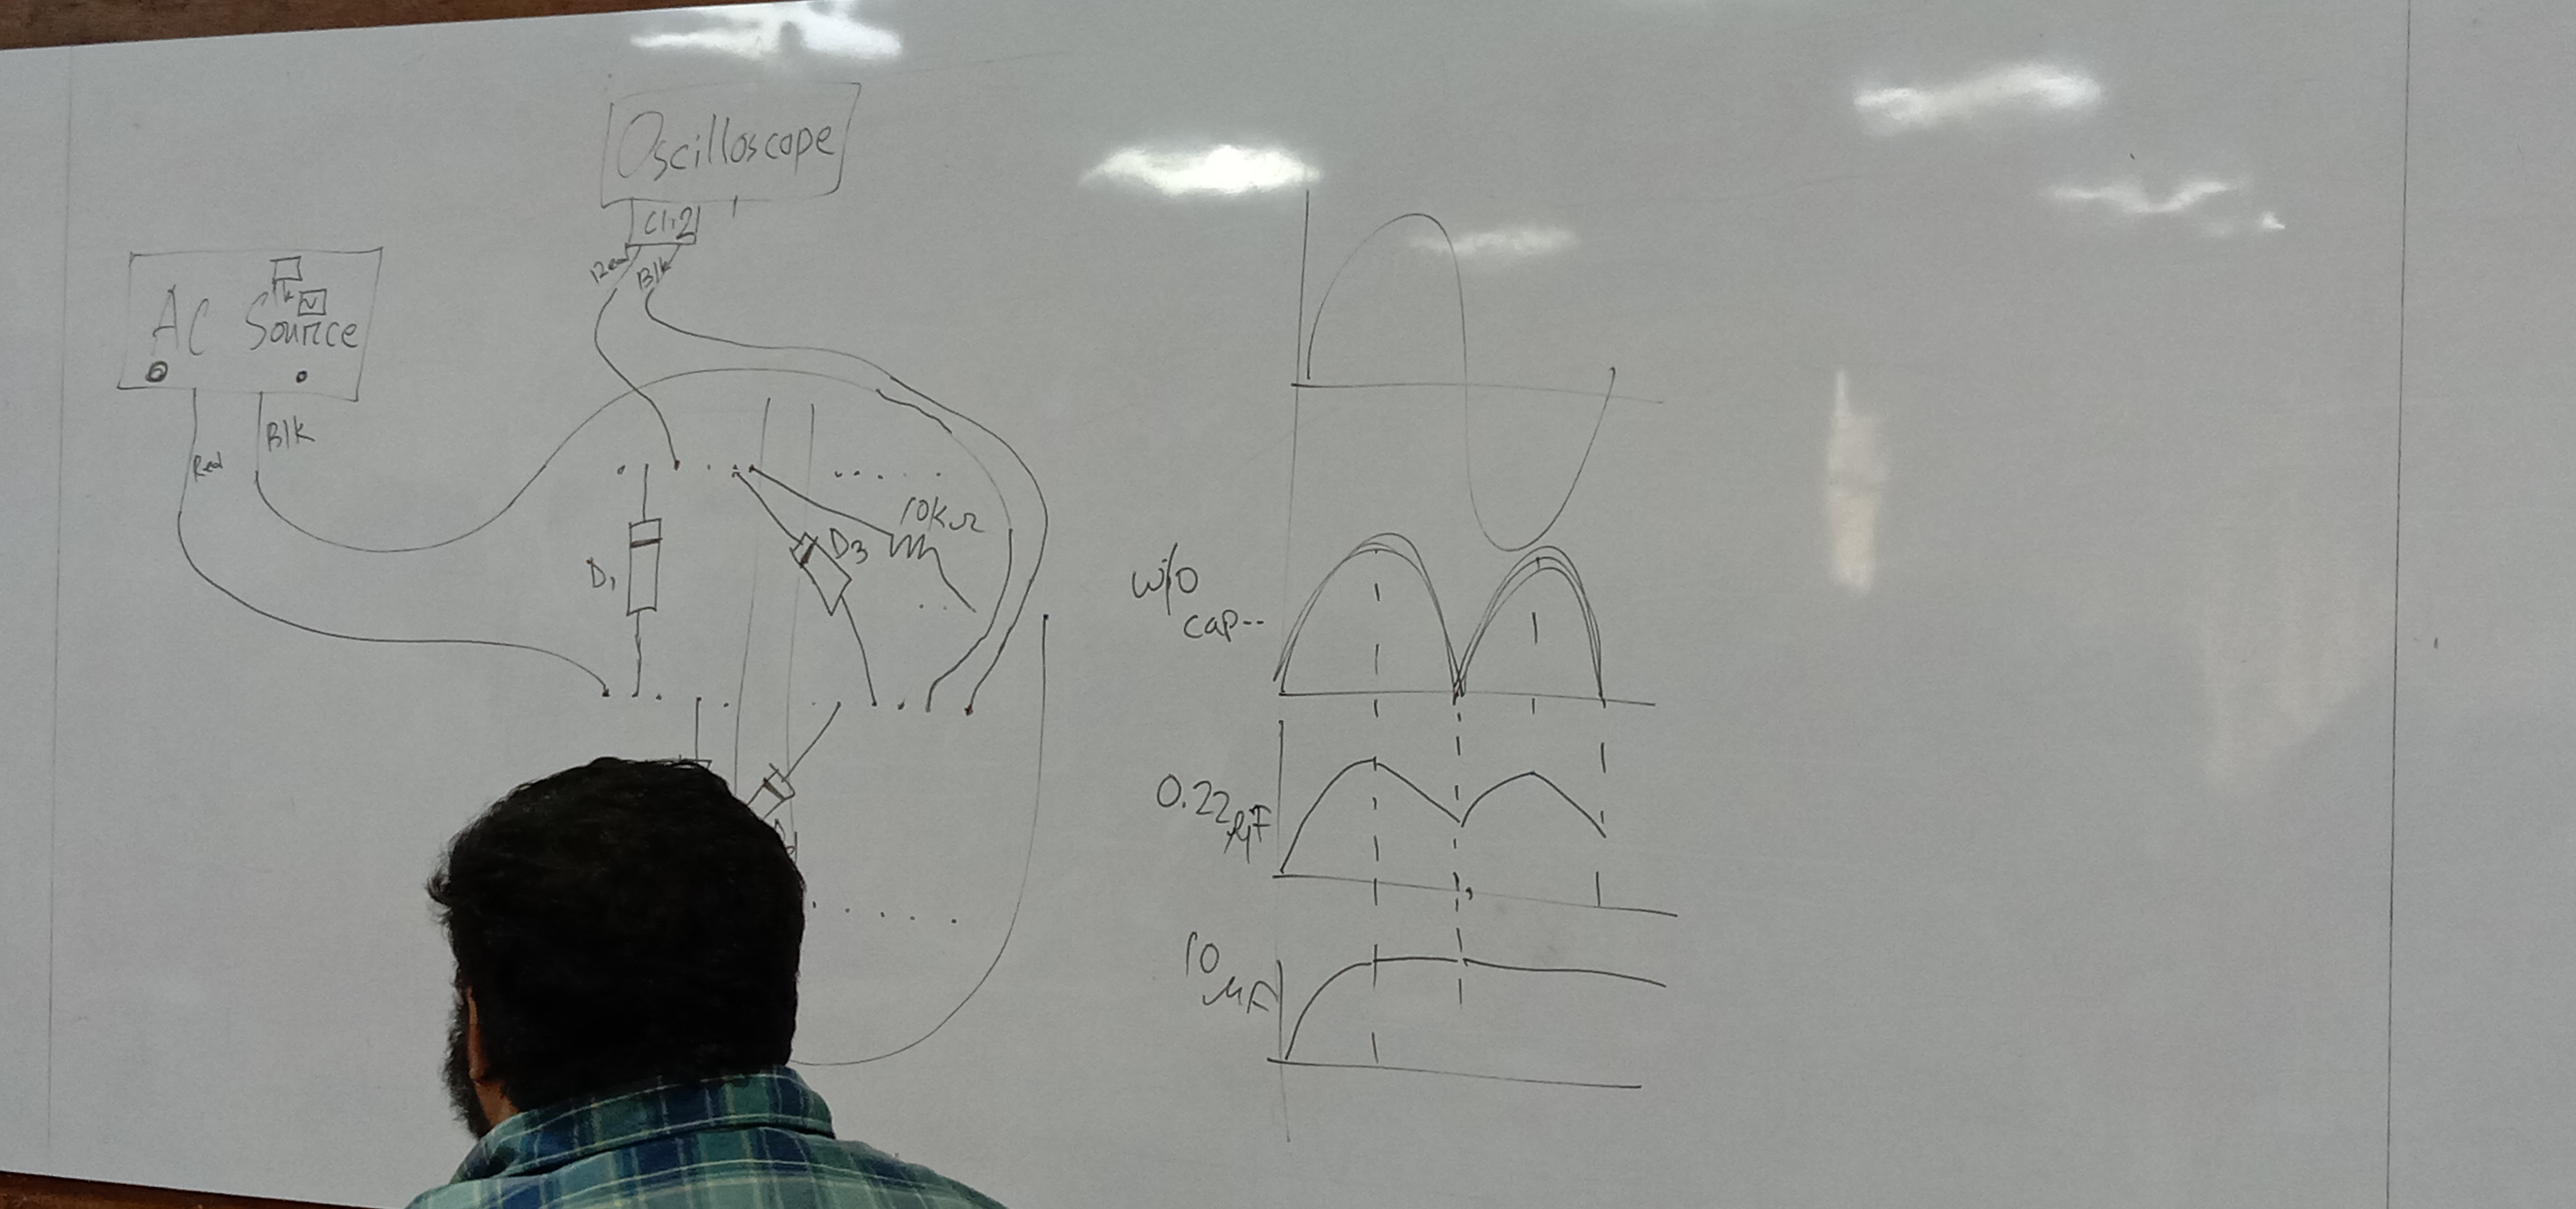 Oscilloscope
Ch2
Red
Blk
AC Source
Red
Blk
10kΩ
D1
D3
w/o
cap--
0.22μF
10
μF